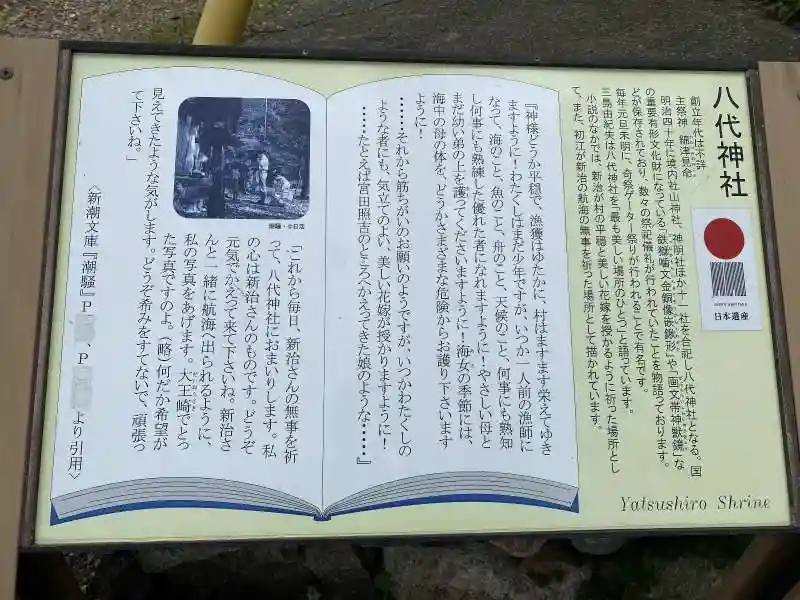 八代神社
創立年代は不詳
主祭神 綿津見命
明治四十年に境内社山神社、神明社ほか十一社を合祀し八代神社となる。国
の重要有形文化財になっている「鉄獄噛文金銅像嵌鋏形」や「画文帯神獣鏡」な
どが保存されており、数々の祭祀儀礼が行われていたことを物語っております。
毎年元旦未明に、奇祭ゲーター祭りが行われることで有名です。
三島由紀夫は八代神社を「最も美しい場所のひとつ」と語っています。
小説のなかでは、新治が村の平穏と美しい花嫁を授かるように祈った場所とし
て、また、初江が新治の航海の無事を祈った場所として描かれています。
日本遺産
『神様どうか平穏で、漁獲はゆたかに、村はますます栄えてゆき
ますように!わたくしはまだ少年ですが、いつか一人前の漁師に
なって、海のこと、魚のこと、舟のこと、天候のこと、何事にも熟知
し何事にも熟練した優れた者になれますように!やさしい母と
まだ幼い弟の上を護ってくださいますように!海女の季節には、
海中の母の体を、どうかさまざまな危険からお護り下さいます
ように!
……それから筋ちがいのお願いのようですが、いつかわたくしの
ような者にも、気立てのよい、美しい花嫁が授かりますように!
……たとえば宮田照吉のところへかえってきた娘のような……』
潮騒・
「これから毎日、新治さんの無事を祈
って、八代神社におまいりします。私
の心は新治さんのものです。どうぞ
元気でかえって来て下さいね。新治さ
んと一緒に航海へ出られるように、
私の写真をあげます。大王崎でとっ
た写真ですのよ。(略)何だか希望が
見えてきたような気がします。どうぞ希みをすてないで、頑張っ
て下さいね。」
〈新潮文庫『潮騒』P 、P より引用〉
Yatsushiro Shrine